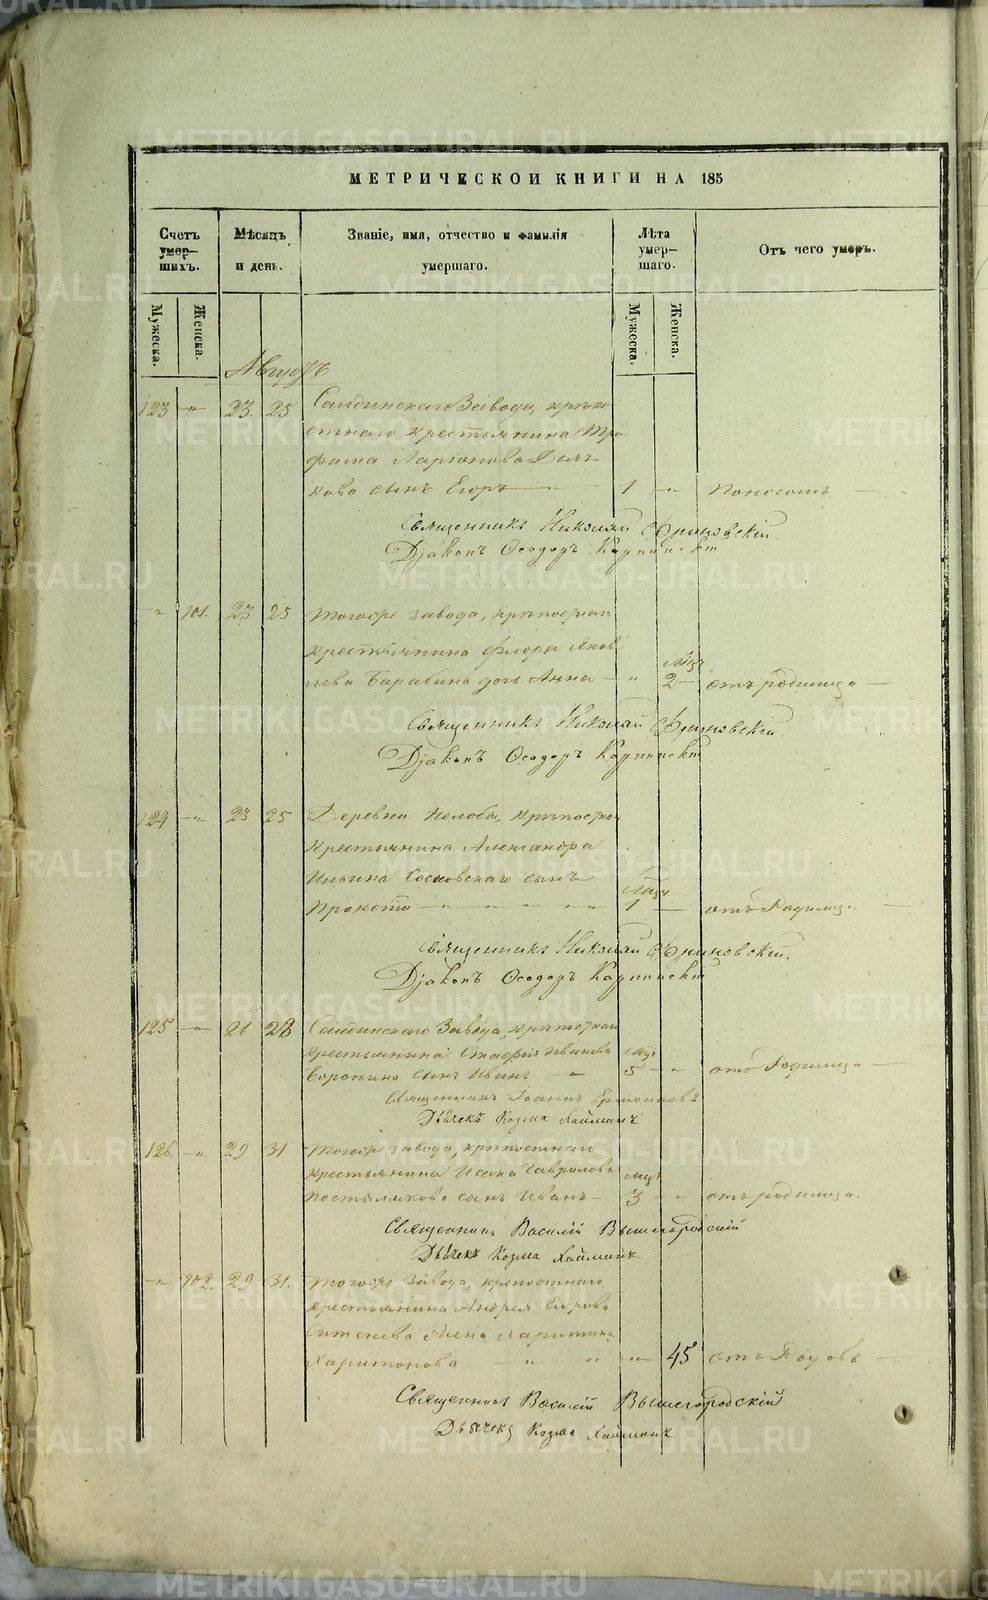 МЕТРИЧЕСКОЙ КНИГИ НА 185
Счетъ умер–шихъ.
Мѣсяцъ и день.
Званіе, имя, отчество и фамилія умершаго.
Лѣта умер–шаго.
Отъ чего умеръ.
Мужеска.
Женска.
Мужеска.
Женска.
Августъ
123 „ 23 25 Салдинскаго Завода, крѣпо
стнаго крестьянина Тро
фима Ларіонова
кова сынъ Егоръ 1 „ Поносомъ
Священникъ Николай
Діаконъ Ѳеодоръ Карпинскій
„ 101. 23 25 Тогоже завода, крѣпостнаго
крестьянина Флора Яков
лева Барабина дочь Анна „ мѣц. 2 отъ родимца
Священникъ Николай
Діаконъ Ѳеодоръ Карпинскій
124 „ 23 25 Деревни Нелобы, крѣпостнаго
крестьянина Александра
Ильина Сосновскаго сынъ
1 отъ Родимца
Священникъ Николай
Діаконъ Ѳеодоръ Карпинскій
125 „ 26 28 Салдинскаго Завода, крѣпостнаго
крестьянина Иванова
Воронина сынъ Иванъ „ мѣц. 5 „ отъ Родимца
Священникъ Іоаннъ Ермолаевъ
Дьячекъ Козма Хайминъ
126. „ 29 31 Тогоже завода, крѣпостнаго
крестьянина Исака Гаврилова
Постылякова сынъ Иванъ мѣц. 3 „ отъ родимца.
Священникъ Василій Вышегородскій
Дьячекъ Козма Хайминъ
„ 102. 29 31. Тогоже Завода, крепостнаго
крестьянина Андрея Егорова
жена Харитина
Харитонова „ „ „ 45 отъ Родовъ
Священникъ Василій Вышегородскій
Дьячекъ Козма Хайминъ
METRIKI.GASO-URAL.RU